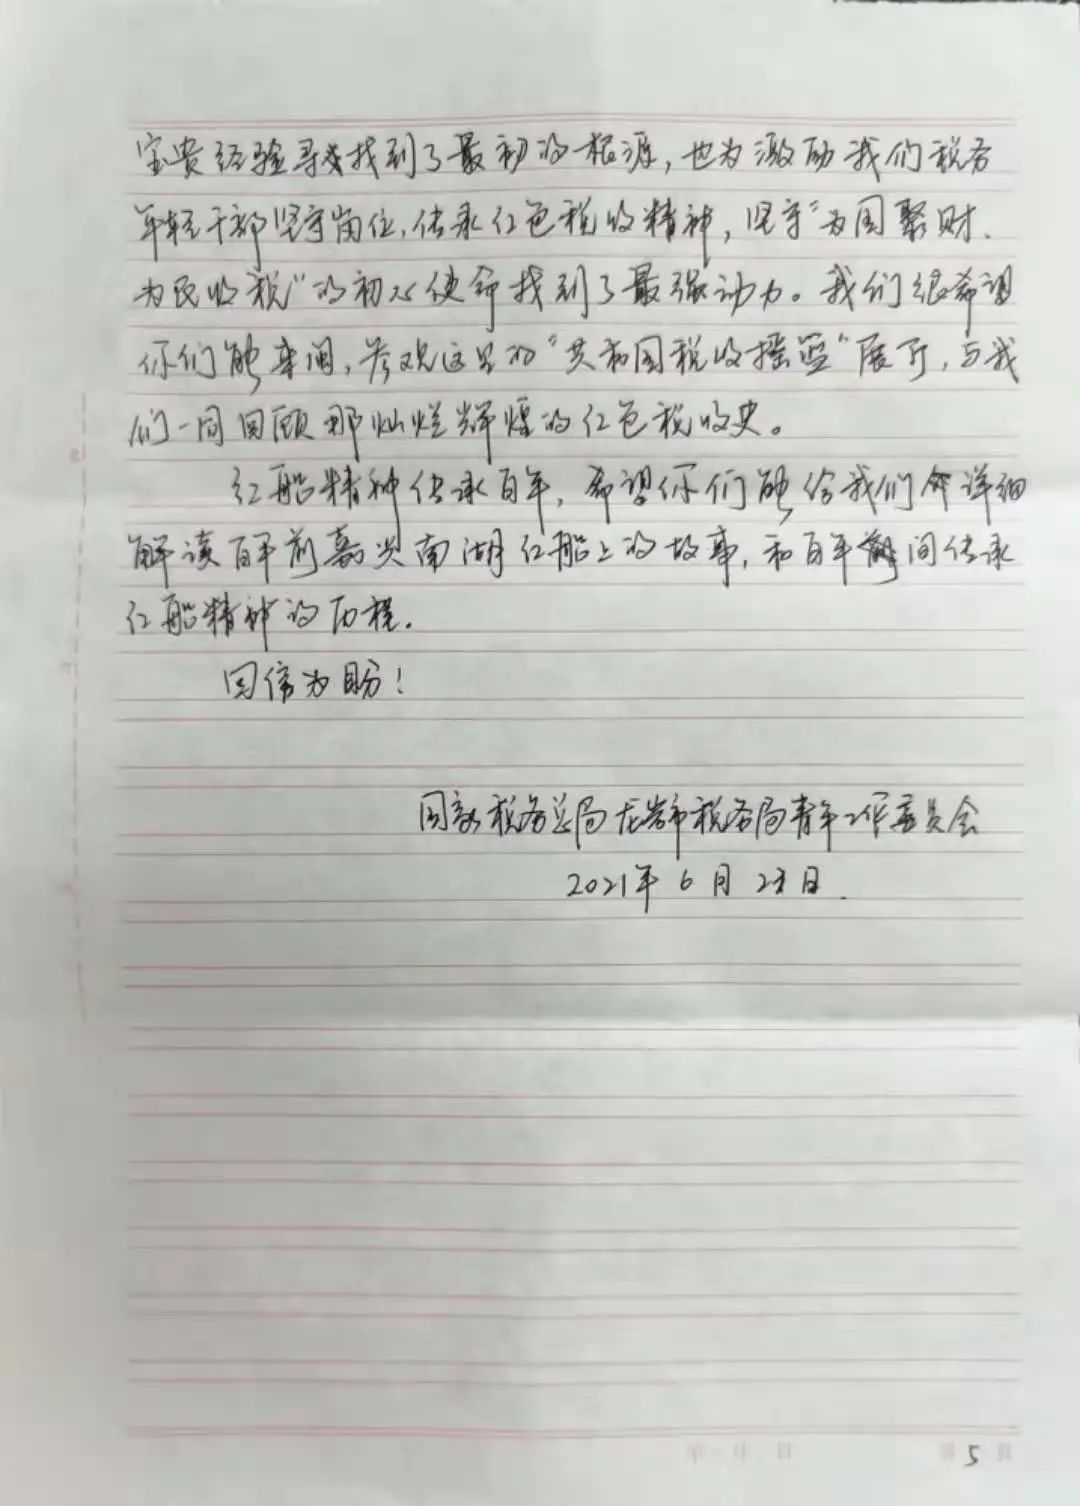 宝贵经验寻找到了最初的根源，也为激励我们税务
年轻干部坚守岗位、传承红色税收精神，坚守“为国聚财、
为民收税”的初心使命找到了最强动力。我们很希望
你们能来闽，参观这里的“共和国税收摇篮”展厅，与我
们一同回顾那灿烂辉煌的红色税收史。
红船精神传承百年，希望你们能给我们详细
解读百年前嘉兴南湖红船上的故事，和百年间传承
红船精神的历程。
回信为盼！
国家税务总局龙岩市税务局青年工作委员会
2021年6月 日
5